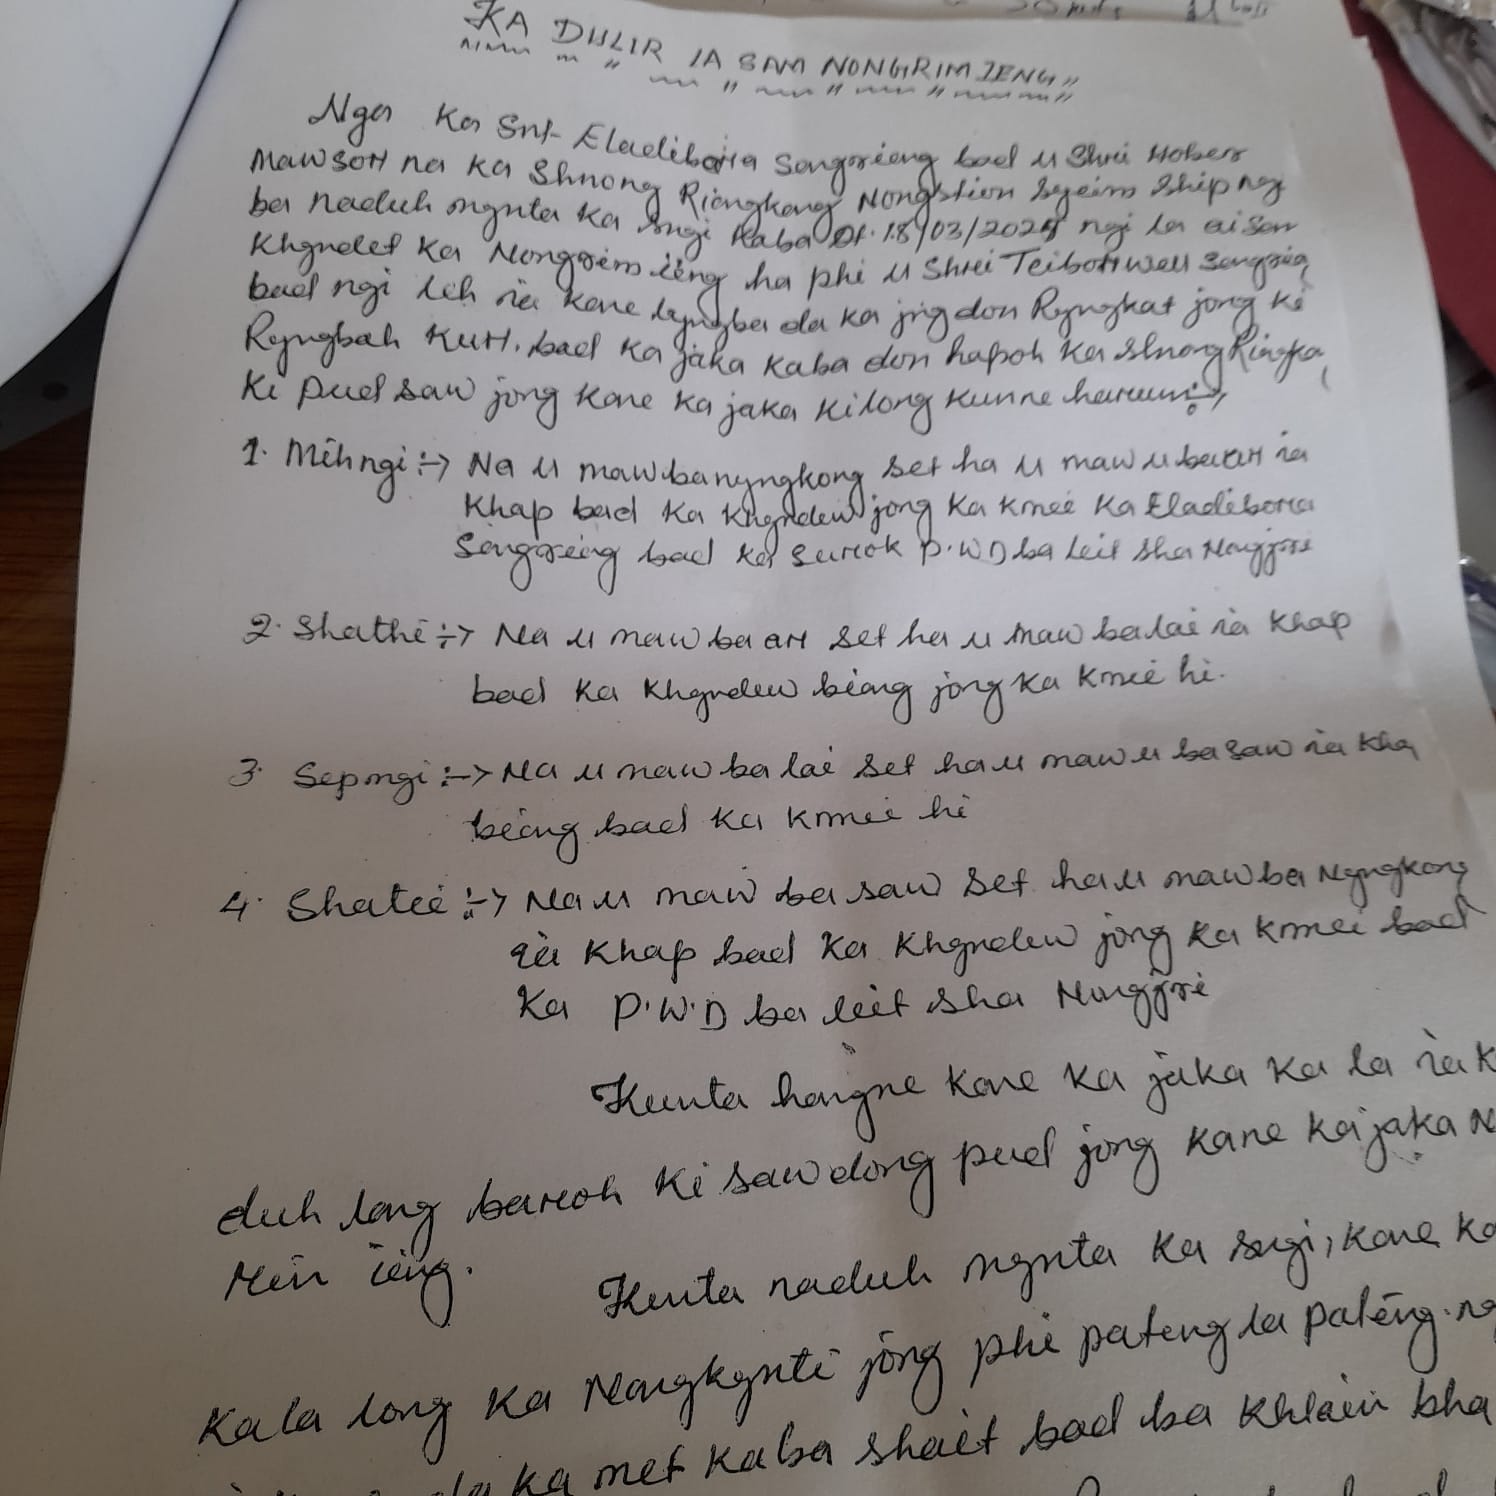 KA DULIR IA SAM NONGRIM IENG
Nga Ka Smt Eladiboha Songsieng bad u Shri Hobers
Mawsor na ka Shnong Riangkang Nongstion Syeim ship ngi
ba naduh mynta ka sngi kaba Dt. 18/03/2025 ngi la ai sam
Khyndef ka Nongrim ieng ha phi u Shri Teiborwell
bad ngi leh ia kane lyngba da ka jing don Ryngkat jong ki
Ryngbah Kur. bad ka jaka kaba don hapoh ka Shnong
Ki pud saw jong kane ka jaka ki long kumne harum :-
1. Mihngi :-> Na u maw banyngkong set ha u maw u baar ia
Khap bad ka Khyndew jong ka kmei ka Eladibona
bad ka surok P.W.D ba leit sha Nongjri
2. Shathi :-> Na u maw ba ar set ha u maw ba lai ia Khap
bad ka Khyndew biang jong ka kmie hi.
3. Sepngi :-> Na u maw ba lai set ha u maw u ba saw ia Kha
biang bad ka kmie hi
4. Shatei :-> Na u maw ba saw set ha u maw ba Nyngkong
ia Khap bad ka Khyndew jong ka kmei bad
ka P.W.D ba leit sha Nongjri
Kumta hangne kane ka jaka ka la ia k
duh long baroh ki sawdong pud jong kane ka jaka N
rim ieng.
Kumta naduh mynta ka sngi, kane ka
Kala long ka Nongkynti jong phi pateng la pateng. ng
da ka met kaba shait bad ba khlain bha